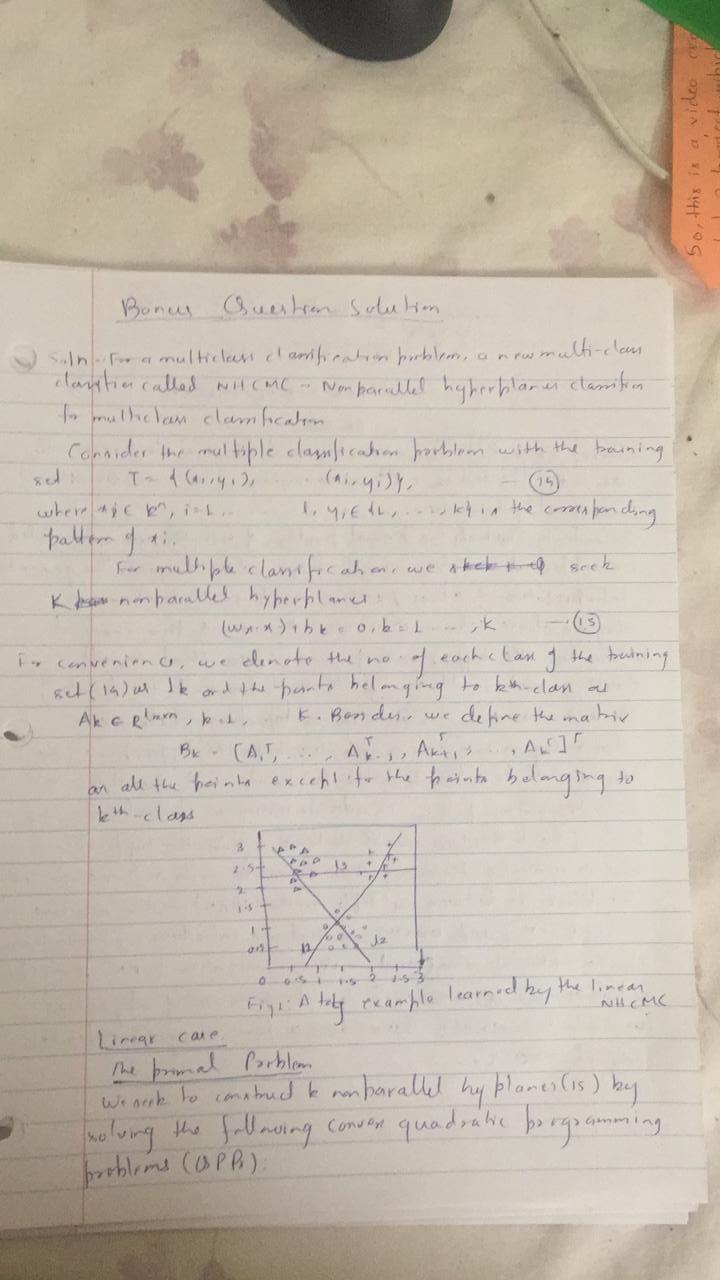 So, this is a video
Bonus Question Solution
Soln - For a multiclass classification problem, a new multi-class
classifier called NHCMC - Nonparallel hyperplanes classifier
for multiclass classification
Consider the multiple classification problem with the training
set: T = {(x1, y1), (xi, yi)}, — (14)
where xi ∈ Rn, i = 1.. l, yi ∈ {1, ..., k} is the corresponding
pattern of xi.
For multiple classification, we seek
K nonparallel hyperplanes:
(wk.x) + bk = 0, k = 1 ..., K — (15)
For convenience, we denote the no. of each class of the training
set (14) as lk and the points belonging to kth-class as
Ak ∈ Rlkxn, k = 1, K. Besides, we define the matrix
Bk = [A1T, ..., ATk-1, ATk+1, ..., AkT]T
as all the points except for the points belonging to
kth-class
3
2.5
2
1.5
1
0.5
l3
l1
l2
0 0.5 1 1.5 2 2.5 3
Fig 1: A toy example learned by the linear
NHCMC
Linear case.
The primal Problem
We seek to construct k nonparallel hyplanes (15) by
solving the following convex quadratic programming
problems (QPPs):